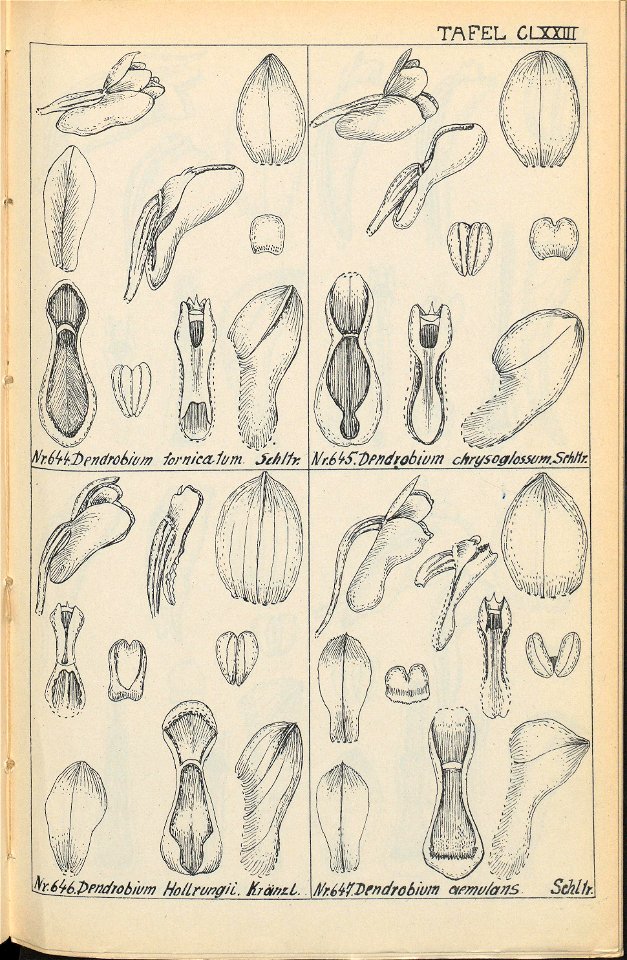 TAFEL CLXXIII
Nr. 644. Dendrobium fornicatum Schltr.
Nr. 645. Dendrobium chrysoglossum, Schltr.
Nr. 646. Dendrobium Hollrungii. Kränzl.
Nr. 647. Dendrobium aemulans Schltr.